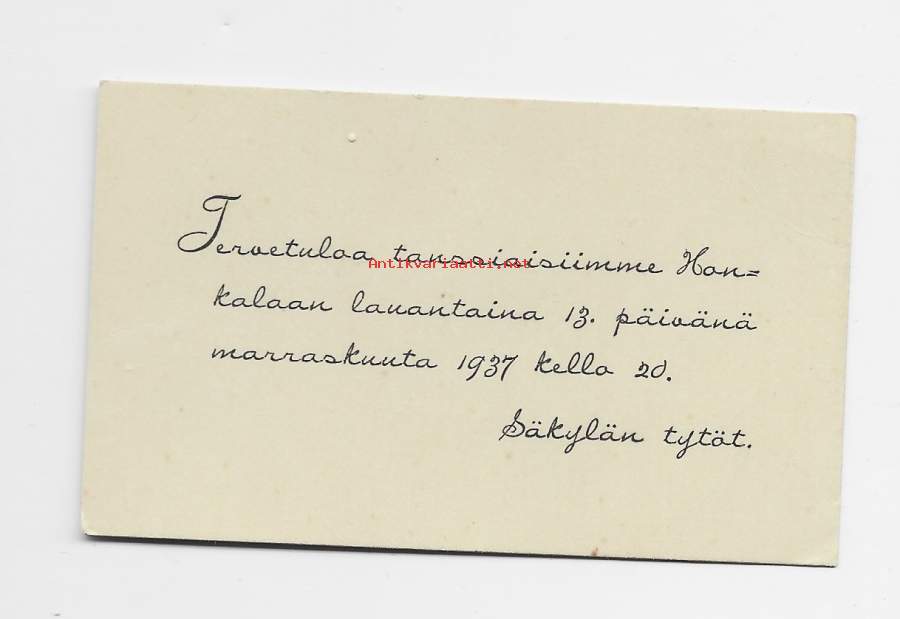 Tervetuloa tanssiaisiimme Hon=
Antikvariaatti.net
kalaan lauantaina 13. päivänä
marraskuuta 1937 kello 20.
Säkylän tytöt.